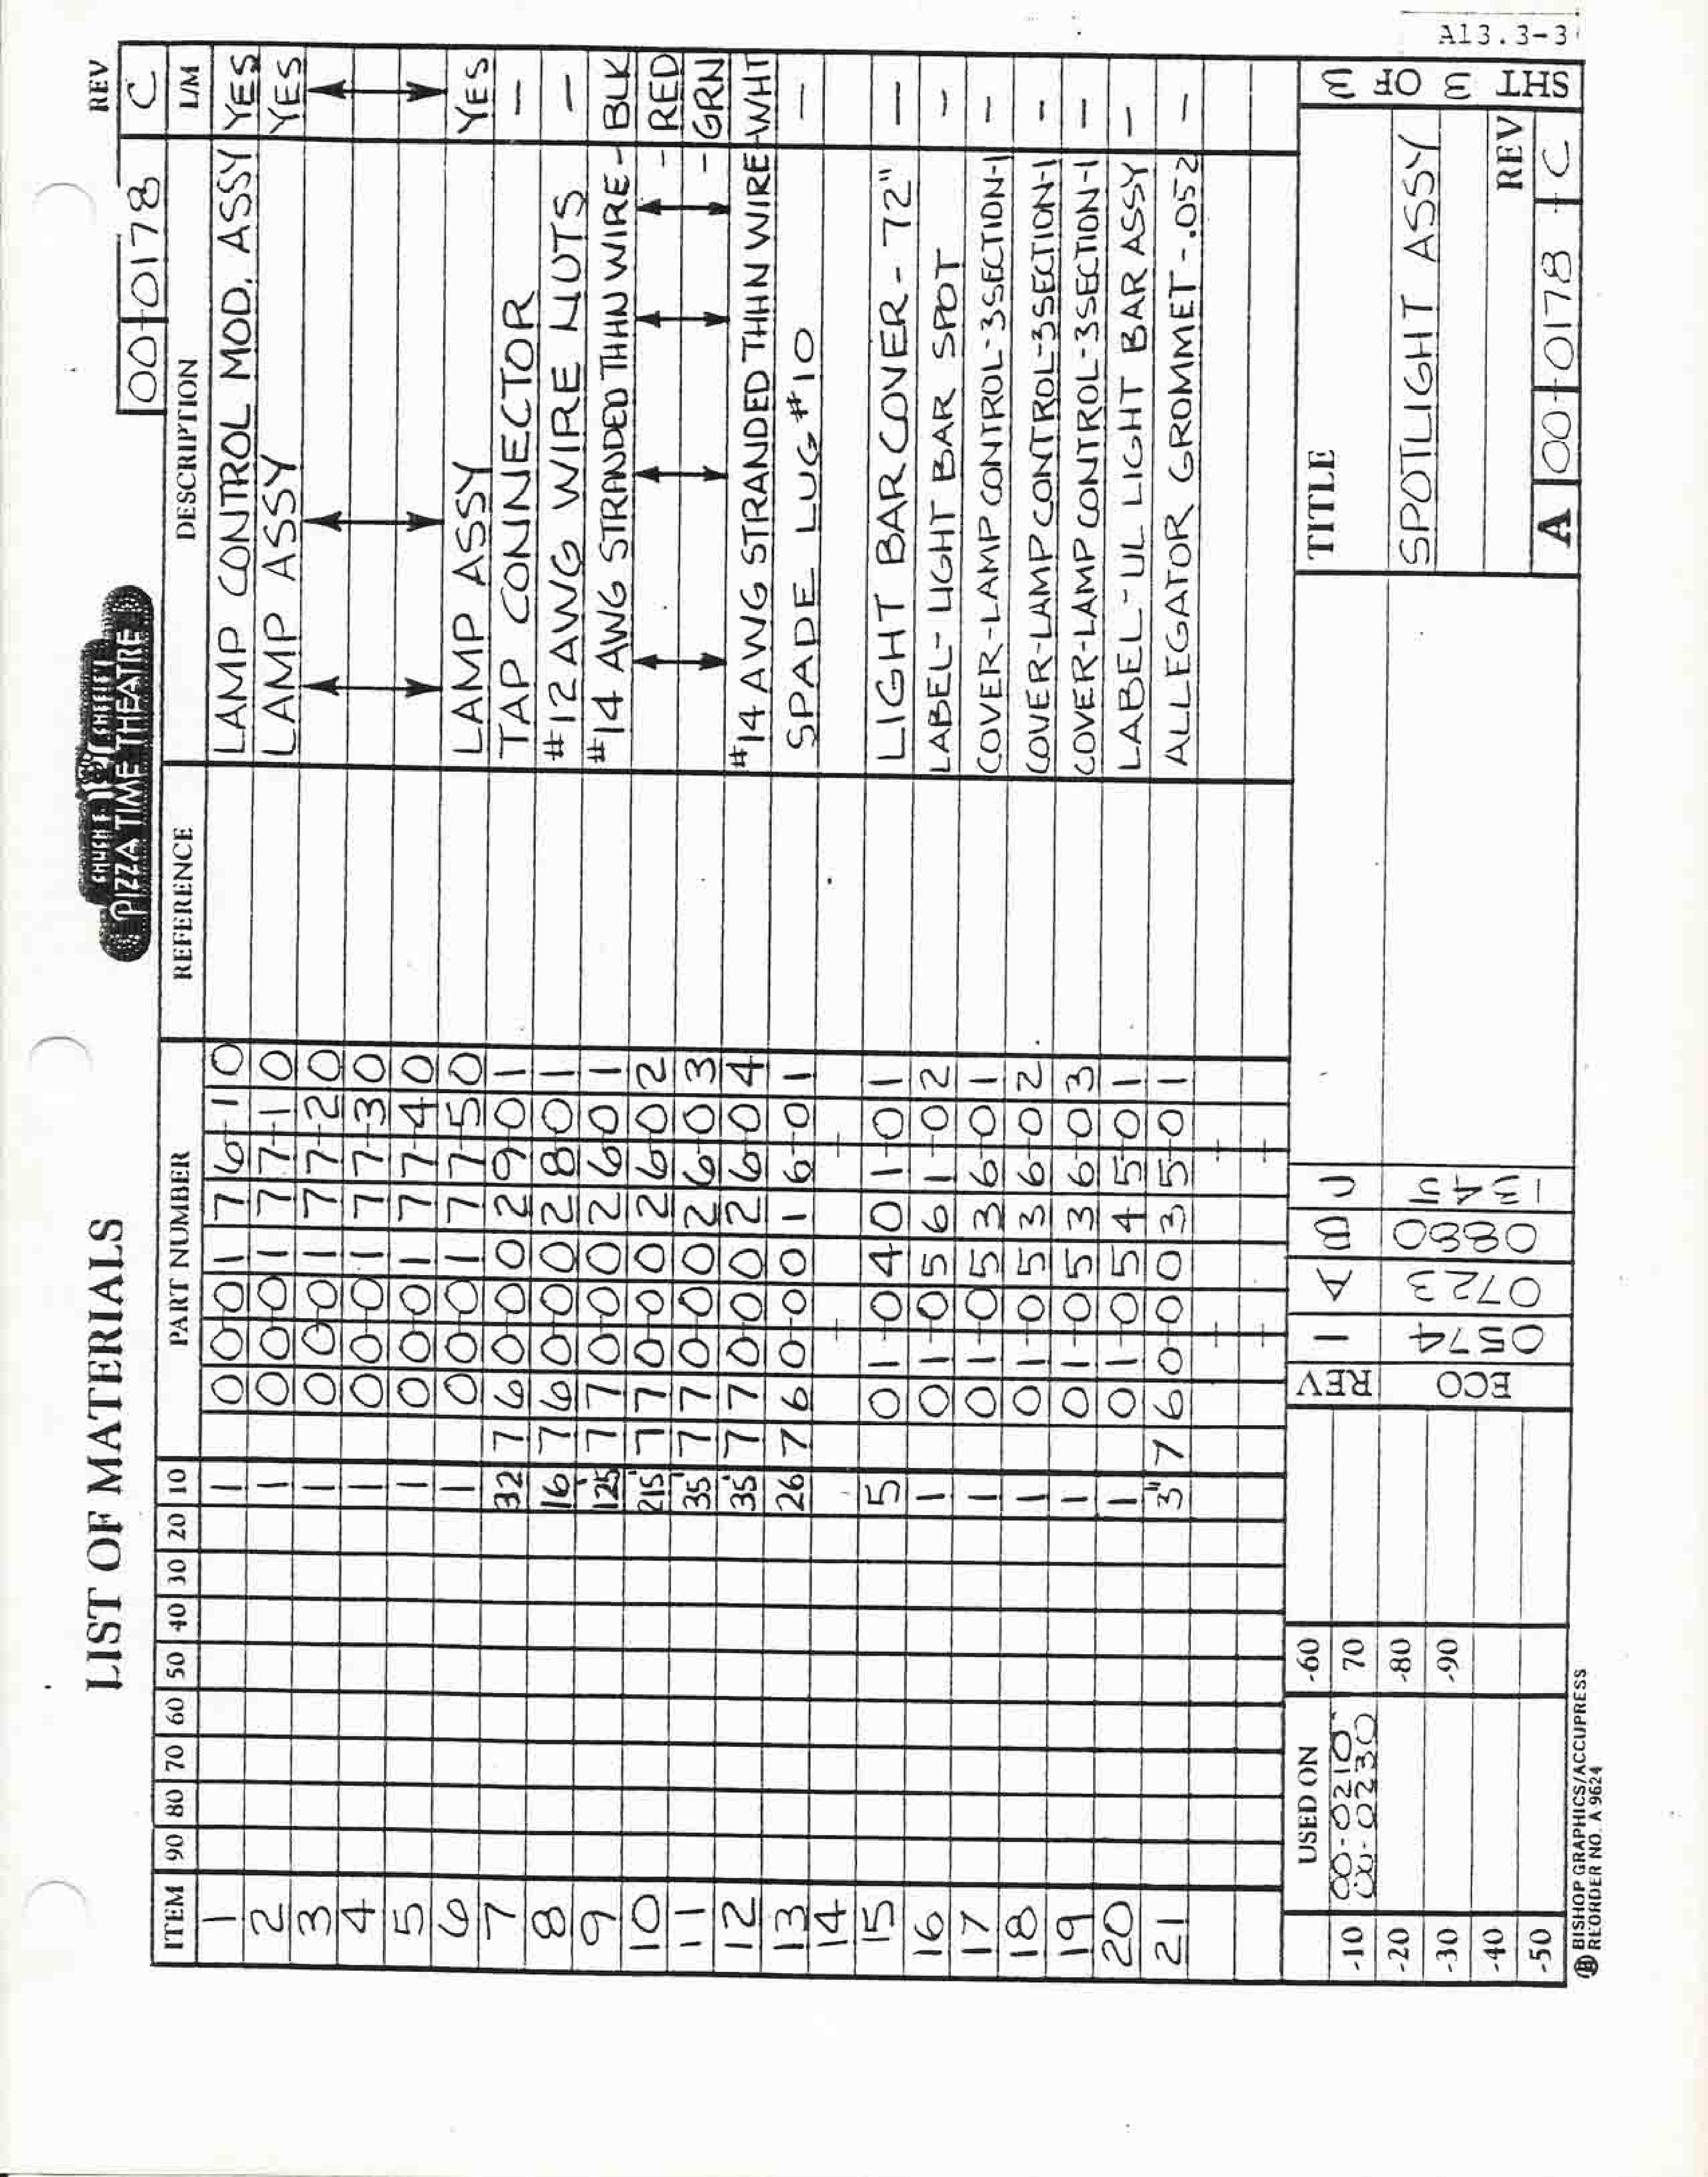 LIST OF MATERIALS
CHUCK E. CHEESE'S
PIZZA TIME THEATRE
REV
00-0178 C
ITEM 90 80 70 60 50 40 30 20 10 PART NUMBER REFERENCE DESCRIPTION L/M
1 1 00-0176-10 LAMP CONTROL MOD. ASSY YES
2 1 00-0177-10 LAMP ASSY YES
3 1 00-0177-20
4 1 00-0177-30
5 1 00-0177-40
6 1 00-0177-50 LAMP ASSY YES
7 32 760-0029-01 TAP CONNECTOR —
8 16 760-0028-01 #12 AWG WIRE NUTS —
9 125' 770-0026-01 #14 AWG STRANDED THHN WIRE - BLK
10 215' 770-0026-02 - RED
11 35' 770-0026-03 - GRN
12 35' 770-0026-04 #14 AWG STRANDED THHN WIRE - WHT
13 26 760-0016-01 SPADE LUG #10 —
14
15 5 01-0401-01 LIGHT BAR COVER - 72" —
16 1 01-0561-02 LABEL - LIGHT BAR SPOT —
17 1 01-0536-01 COVER-LAMP CONTROL-3SECTION-1 —
18 1 01-0536-02 COVER-LAMP CONTROL-3SECTION-1 —
19 1 01-0536-03 COVER-LAMP CONTROL-3SECTION-1 —
20 1 01-0545-01 LABEL-UL LIGHT BAR ASSY —
21 3" 760-0035-01 ALLEGATOR GROMMET-.052 —
USED ON
-10 00-0210
00-0230
-20
-30
-40
-50
-60
70
-80
-90
REV 1 A B
ECO 0574 0723 0880
TITLE
SPOTLIGHT ASSY
REV
A 00-0178 C
SHT 3 OF 3
A13.3-3
BISHOP GRAPHICS/ACCUPRESS
REORDER NO. A 9624